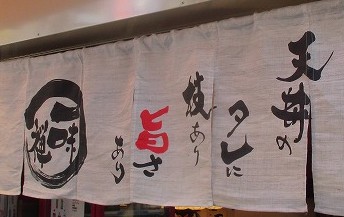 天丼の
タレに
技あり
旨さ
あり
一味禅